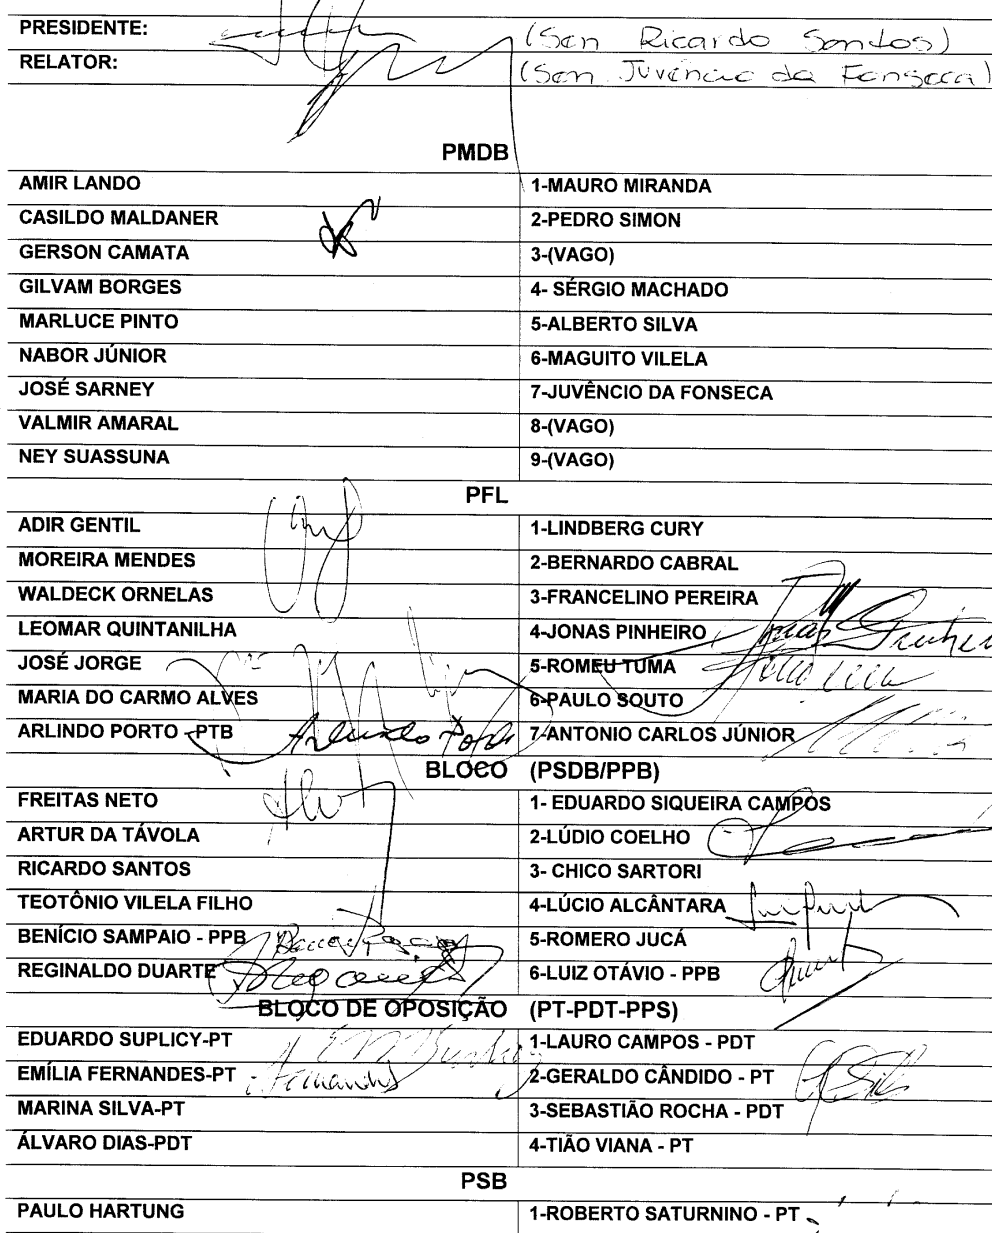 PRESIDENTE: (Sen Ricardo Santos)
RELATOR: (Sen Juvêncio da Fonseca)
PMDB
AMIR LANDO 1-MAURO MIRANDA
CASILDO MALDANER 2-PEDRO SIMON
GERSON CAMATA 3-(VAGO)
GILVAM BORGES 4- SÉRGIO MACHADO
MARLUCE PINTO 5-ALBERTO SILVA
NABOR JÚNIOR 6-MAGUITO VILELA
JOSÉ SARNEY 7-JUVÊNCIO DA FONSECA
VALMIR AMARAL 8-(VAGO)
NEY SUASSUNA 9-(VAGO)
PFL
ADIR GENTIL 1-LINDBERG CURY
MOREIRA MENDES 2-BERNARDO CABRAL
WALDECK ORNELAS 3-FRANCELINO PEREIRA
LEOMAR QUINTANILHA 4-JONAS PINHEIRO Jonas Pinheiro
JOSÉ JORGE 5-ROMEU TUMA
MARIA DO CARMO ALVES 6-PAULO SOUTO
ARLINDO PORTO -PTB Arlindo Porto 7-ANTONIO CARLOS JÚNIOR
BLOCO (PSDB/PPB)
FREITAS NETO 1- EDUARDO SIQUEIRA CAMPOS
ARTUR DA TÁVOLA 2-LÚDIO COELHO
RICARDO SANTOS 3- CHICO SARTORI
TEOTÔNIO VILELA FILHO 4-LÚCIO ALCÂNTARA
BENÍCIO SAMPAIO - PPB 5-ROMERO JUCÁ
REGINALDO DUARTE 6-LUIZ OTÁVIO - PPB
BLOCO DE OPOSIÇÃO (PT-PDT-PPS)
EDUARDO SUPLICY-PT 1-LAURO CAMPOS - PDT
EMÍLIA FERNANDES-PT 2-GERALDO CÂNDIDO - PT
MARINA SILVA-PT 3-SEBASTIÃO ROCHA - PDT
ÁLVARO DIAS-PDT 4-TIÃO VIANA - PT
PSB
PAULO HARTUNG 1-ROBERTO SATURNINO - PT